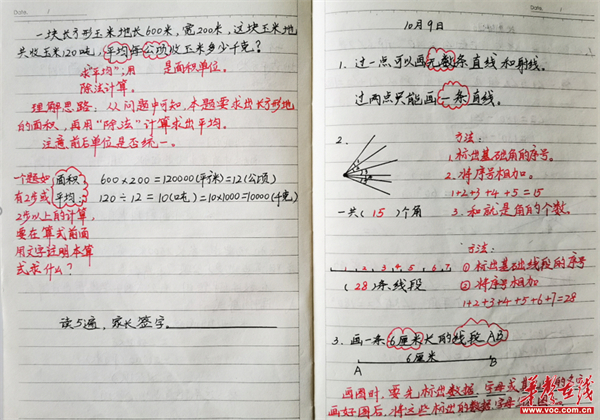 Date
一块长方形玉米地长600米，宽200米，这块玉米地
共收玉米120吨，平均每公顷收玉米多少千克？
求"平均"；用 是面积单位。
除法计算。
理解思路：从问题中可知，本题要求出长方形地
的面积，再用"除法"计算求出平均。
注意前后单位是否统一。
一个题如
有2步或
2步以上的计算，
要在算式前面
用文字注明本算
式求什么？
面积： 600×200=120000(平米)=12(公顷)
平均： 120÷12=10(吨)=10×1000=10000(千克)
读5遍，家长签字。
Date
10月9日
1. 过一点可以画无数条直线和射线。
过两点只能画一条直线。
2.
方法：
1.标出基础角的序号。
2. 将序号相加。
1+2+3+4+5=15
一共(15)个角 3.和就是角的个数。
方法：
1 2 3 4 5 6 7
①标出基础线段的序号
(28)条线段 ②将序号相加
1+2+3+4+5+6+7=28
3. 画一条6厘米长的线段AB
6厘米
A B
画图时，要先标出数据，字母或
画好图后，将这些标出的数据，字母
华声在线
www.voc.com.cn